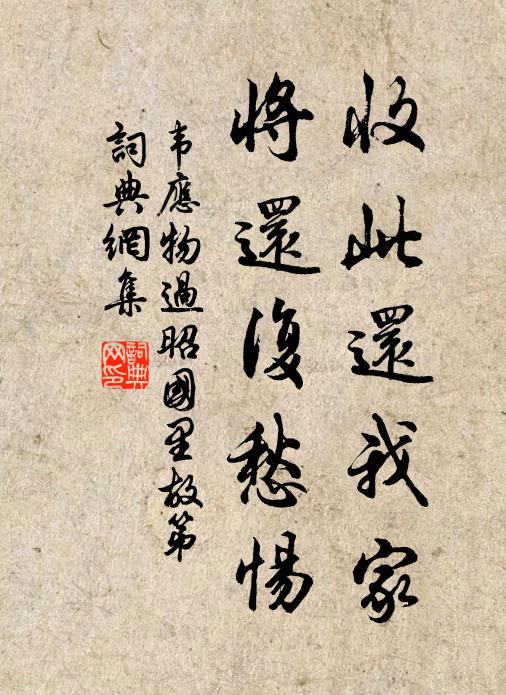 收此還我家
將還復愁惕
韦應物過昭國里故第
詞典網集
詞典
网印